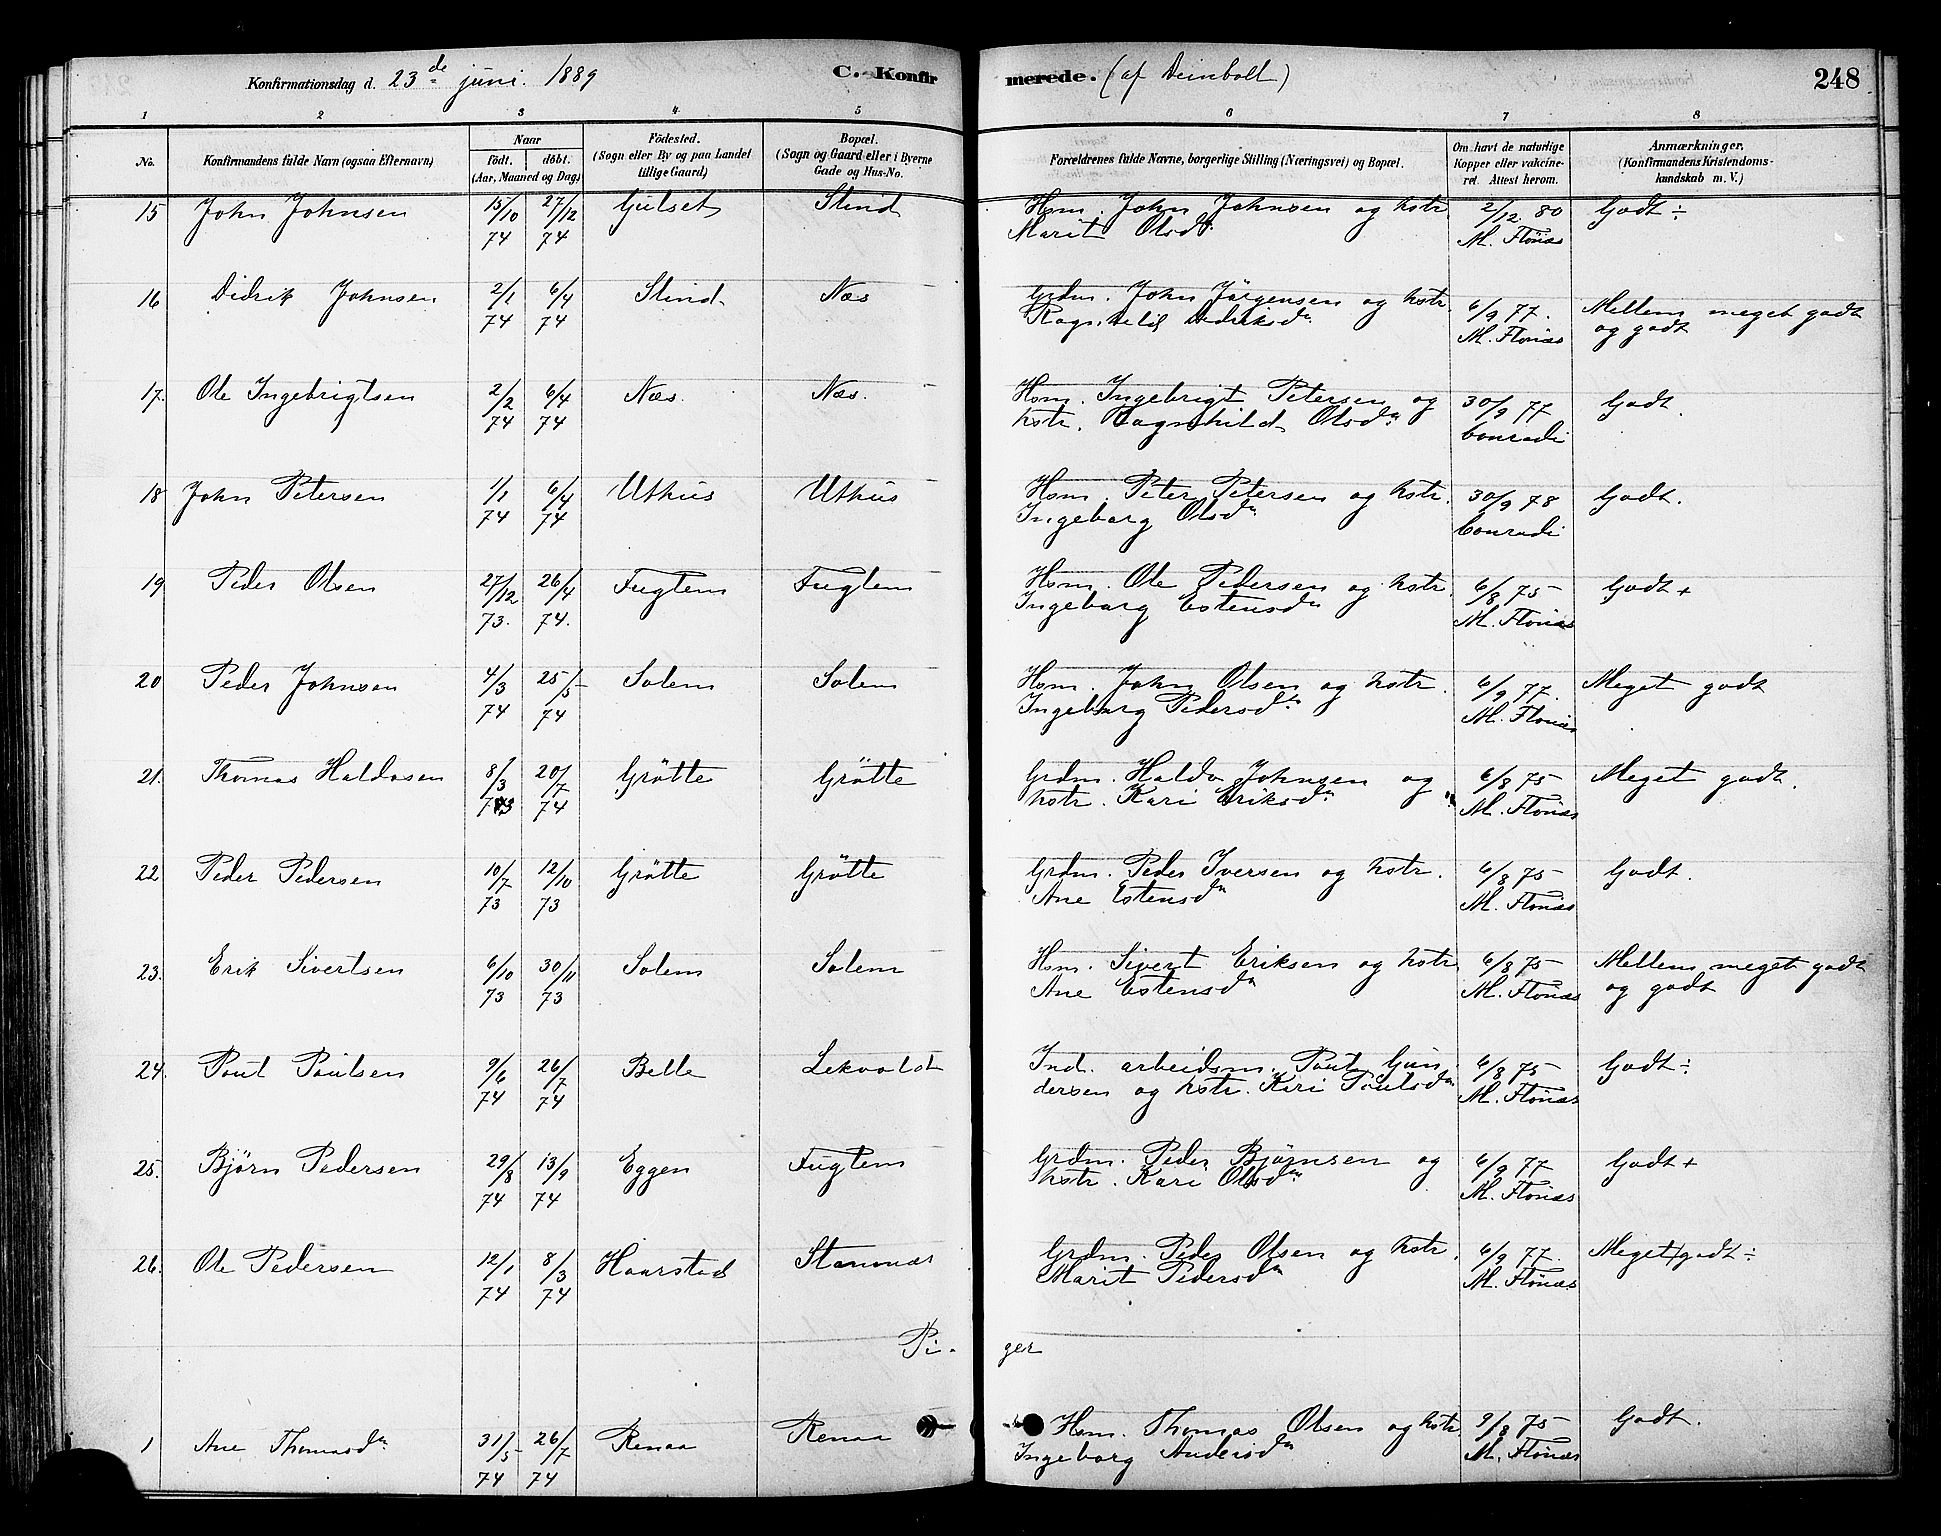 Konfirmationsdag d. 23de juni 1889 C. Konfirmerede. (af Deinbolt) 248
1 2 3 4 5 6 7 8
No. Konfirmandens fulde Navn (ogsaa Efternavn) Naar født. døbt. (Aar, Maaned og Dag) Fødested. (Sogn eller By og paa Landet tillige Gaard) Bopæl. (Sogn og Gaard eller i Byerne Gade og Hus-No. Forældrenes fulde Navne, borgerlige Stilling (Næringsvei) og Bopæl. Om havt de naturlige Kopper eller vakcineret. Attest herom. Anmærkninger. (Konfirmandens Kristendomskundskab m. V.)
15 John Johnsen 15/10 74 27/12 74 Gulset Slind Hsm. John Johnsen og kstr. 2/12 80 Godt ÷
Marit Olsdr. M. Flönæs
16 Didrik Johnsen 2/1 74 6/4 74 Slind Næs Grdm. John Jörgensen og kstr. 6/9 77. Mellem meget godt
Ragnhild Didriksdr. M. Flönæs og godt
17. Ole Ingebrigtsen 2/2 74 6/4 74 Næs. Næs. Hsm. Ingebrigt Petersen og 30/9 77 Godt.
kstr. Ragnhild Olsdr. Conradi
18 John Petersen 1/1 74 6/4 74 Uthus Uthus Hsm. Peter Petersen og kstr. 30/9 78 Godt.
Ingeborg Olsdr. Conradi
19 Peder Olsen 27/12 73. 26/4 74. Fuglem Fuglem Hsm. Ole Pedersen og kstr. 6/8 75 Godt +
Ingeborg Estensdr. M. Flönæs
20 Peder Johnsen 4/3 74 25/5 74 Solem Solem Hsm. John Olsen og kstr. 6/9 77. Meget godt
Ingeborg Pedersdr. M. Flönæs
21. Thomas Haldosen 8/3 73 20/7 74 Grötte Grötte Grdm. Haldo Johnsen og 6/8 75 Meget godt.
kstr. Kari Eriksdr. M. Flönæs
22 Peder Pedersen 10/7 73 12/10 73 Grötte Grötte Grdm. Peder Iversen og kstr. 6/8 75 Godt.
Ane Estensdr. M. Flönæs
23. Erik Sivertsen 6/10 73 30/11 73 Solem Solem Hsm. Sivert Eriksen og kstr. 6/8 75 Mellem meget godt
Ane Estensdr. M. Flönæs og godt
24. Poul Poulsen 9/6 74 26/7 74 Belle Lekvoldt Ind. arbeidsm. Poul Gun- 6/8 75 Godt ÷
dersen og kstr. Kari Poulsdr. M. Flönæs
25. Bjørn Pedersen 29/8 74 13/9 74 Eggen Fuglem Grdm. Peder Bjørnsen og 6/9 77 Godt +
kstr. Kari Olsdr. M. Flönæs
26. Ole Pedersen 12/1 74 8/3 74 Haarstad Stamnæs Grdm. Peder Olsen og kstr. 6/9 77. Meget godt ÷
Marit Pedersdr. M. Flönæs
Pi- ger
1 Ane Thomasdr. 31/5 74 26/7 74 Renaa Renaa Hsm. Thomas Olsen og kstr. 9/8 75 Godt.
Ingeborg Andersdr. M. Flönæs